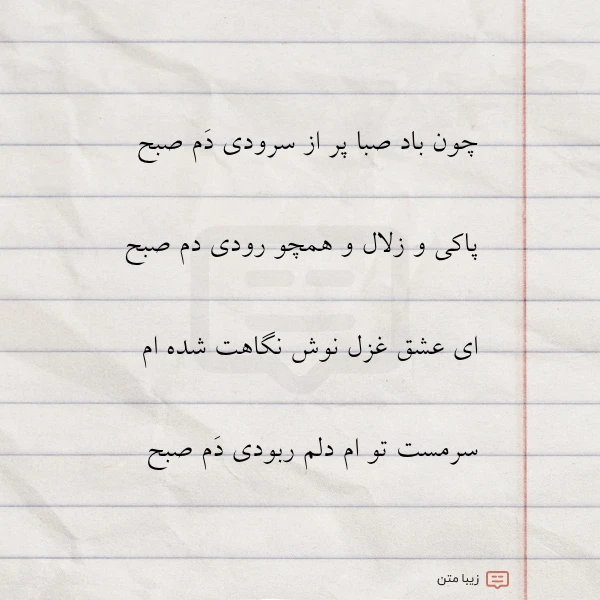 چون باد صبا پر از سرودی دَم صبح
پاکی و زلال و همچو رودی دم صبح
ای عشق غزل نوش نگاهت شده ام
سرمست تو ام دلم ربودی دَم صبح
زیبا متن